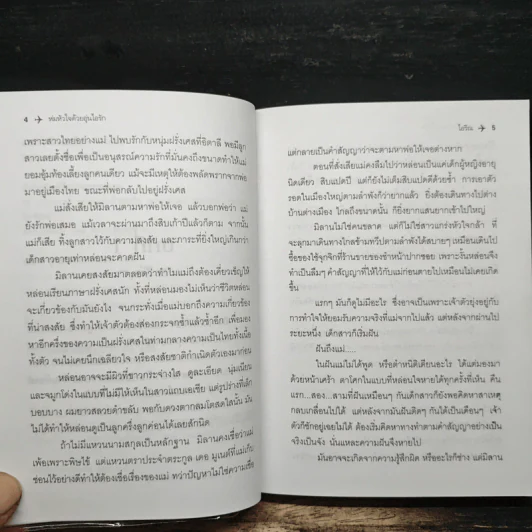 4 ✈ ห่มหัวใจด้วยอุ่นไอรัก
เพราะสาวไทยอย่างแม่ ไปพบรักกับหนุ่มฝรั่งเศสที่อิตาลี พอมีลูก
สาวเลยตั้งชื่อเพื่อเป็นอนุสรณ์ความรักที่มั่นคงถึงขนาดทำให้แม่
ยอมอุ้มท้องเลี้ยงลูกคนเดียว แม้จะมีเหตุให้ต้องพลัดพรากจากพ่อ
มาอยู่เมืองไทย ขณะที่พ่อกลับไปอยู่ฝรั่งเศส
แม่สั่งเสียให้มิลานตามหาพ่อให้เจอ แล้วบอกพ่อว่า แม่
ยังรักพ่อเสมอ แม้เวลาจะผ่านมาถึงสิบเก้าปีแล้วก็ตาม จากนั้น
แม่ก็เสีย ทิ้งลูกสาวไว้กับความสงสัย และภาระที่ยิ่งใหญ่เกินกว่า
เด็กสาวอายุเท่าหล่อนจะคาดฝัน
มิลานเคยสงสัยมาตลอดว่าทำไมแม่ถึงต้องเคี่ยวเข็ญให้
หล่อนเรียนภาษาฝรั่งเศสนัก ทั้งที่หล่อนมองไม่เห็นว่าชีวิตหล่อน
จะเกี่ยวข้องกับมันยังไง จนกระทั่งเมื่อแม่บอกถึงความเกี่ยวข้อง
ที่น่าสงสัย ซึ่งทำให้เจ้าตัวต้องส่องกระจกซ้ำแล้วซ้ำอีก เพื่อมอง
หาอีกครึ่งของความเป็นฝรั่งเศสในท่ามกลางความเป็นไทยทั้งเนื้อ
ทั้งตัว จนไม่เคยนึกเฉลียวใจ หรือสงสัยชาติกำเนิดตัวเองมาก่อน
หล่อนอาจจะมีผิวที่ขาวกระจ่างใส ดูละเอียด นุ่มเนียน
และจมูกโด่งในแบบที่ไม่มีให้เห็นในสาวแถบเอเชีย แต่รูปร่างที่เล็ก
บอบบาง ผมยาวสลวยดำขลับ พอกับดวงตากลมโตสดใสนั้น มัน
ไม่ได้ทำให้หล่อนดูเป็นลูกครึ่งลูกค่อนได้เลยสักนิด
ถ้าไม่มีแหวนนามสกุลเป็นหลักฐาน มิลานคงเชื่อว่าแม่
เพ้อเพราะพิษไข้ แต่แหวนตราประจำตระกูล เดอ มูเนต์ที่แม่เก็บ
ซ่อนไว้อย่างดีทำให้ต้องเชื่อเรื่องของแม่ ทว่าปัญหาไม่ใช่ความเชื่อ
ไอริณ ✈ 5
แต่กลายเป็นคำสัญญาว่าจะตามหาพ่อให้เจอต่างหาก
ตอนที่สั่งเสียแม่คงลืมไปว่าหล่อนเป็นแค่เด็กผู้หญิงอายุ
นิดเดียว สิบแปดปี แต่ก็ยังไม่เต็มสิบแปดดีด้วยซ้ำ การเอาตัว
รอดในเมืองใหญ่ตามลำพังก็ว่ายากแล้ว ยิ่งต้องเดินทางไปต่าง
บ้านต่างเมือง ไกลถึงขนาดนั้น ก็ยิ่งยากแสนยากเข้าไปใหญ่
มิลานไม่ใช่คนขลาด แต่ก็ไม่ใช่สาวแกร่งหัวใจกล้า ที่
จะลุกมาเดินทางไกลข้ามทวีปตามลำพังได้สบายๆ เหมือนเดินไป
ซื้อของใช้จุกจิกที่ร้านขายของชำหน้าปากซอย เพราะงั้นหล่อนจึง
ทำเป็นลืมๆ คำสัญญาที่ให้ไว้กับแม่ก่อนตายไปเหมือนไม่เคยเกิด
ขึ้น
แรกๆ มันก็ดูไม่มีอะไร ซึ่งอาจเป็นเพราะเจ้าตัวยุ่งอยู่กับ
การทำใจให้ยอมรับความจริงที่แม่จากไปแล้ว แต่หลังจากผ่านไป
ระยะหนึ่ง เด็กสาวก็เริ่มฝัน
ฝันถึงแม่.....
ในฝันแม่ไม่ได้พูด หรือตำหนิติเตียนอะไร ได้แต่มองมา
ด้วยหน้าเศร้า ตาโศกในแบบที่หล่อนใจหายได้ทุกครั้งที่เห็น คืน
แรก...สอง...สามที่ฝันเหมือนๆ กันเด็กสาวก็ยังพอคิดหาสาเหตุ
กลบเกลื่อนไปได้ แต่หลังจากมันฝันติดๆ กันได้เป็นเดือนๆ เจ้า
ตัวก็ชักอยู่เฉยไม่ได้ ต้องเริ่มคิดหาทางทำตามคำสัญญาอย่าง
จริงเป็นจัง นั่นแหละความฝันจึงหายไป
มันอาจจะเกิดจากความรู้สึกผิด หรืออะไรก็ช่าง แต่มิลาน